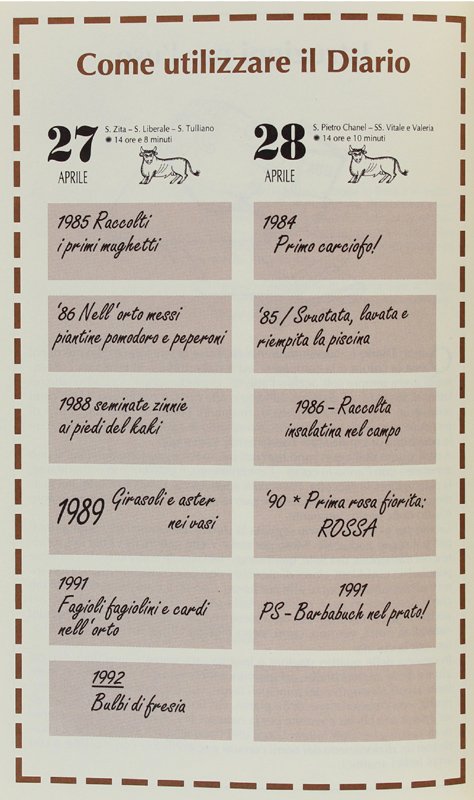 Come utilizzare il Diario
27
APRILE
S. Zita – S. Liberale – S. Tulliano
14 ore e 8 minuti
1985 Raccolti
i primi mughetti
'86 Nell'orto messi
piantine pomodoro e peperoni
1988 seminate zinnie
ai piedi del kaki
1989 Girasoli e aster
nei vasi
1991
Fagioli fagiolini e cardi
nell'orto
1992
Bulbi di fresia
28
APRILE
S. Pietro Chanel – SS. Vitale e Valeria
14 ore e 10 minuti
1984
Primo carciofo!
'85 / Svuotata, lavata e
riempita la piscina
1986 – Raccolta
insalatina nel campo
'90 * Prima rosa fiorita:
ROSSA
1991
PS – Barbabuch nel prato!